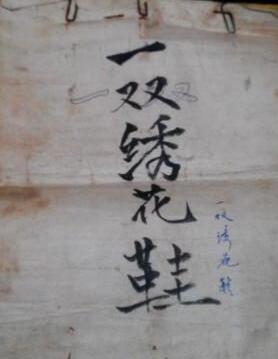 一双绣花鞋
一双绣花鞋